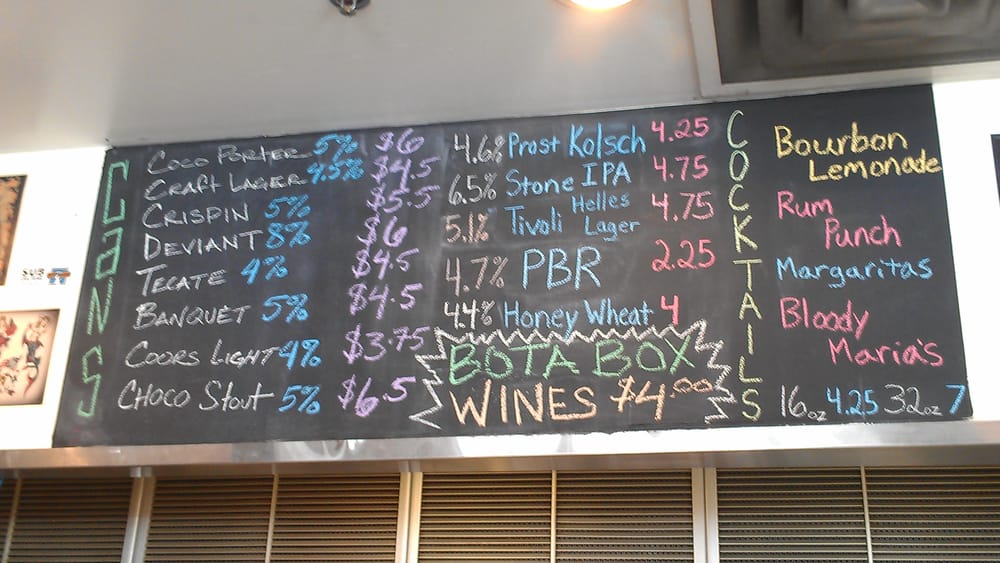 CANS
COCO PORTER 5% $6
CRAFT LAGER 4.5% $4.5
CRISPIN 5% $5.5
DEVIANT 8% $6
TECATE 4% $4.5
BANQUET 5% $4.5
COORS LIGHT 4% $3.75
CHOCO Stout 5% $6.5
4.6% Prost Kolsch 4.25
6.5% Stone IPA 4.75
5.1% Tivoli Helles Lager 4.75
4.7% PBR 2.25
4.4% Honey Wheat 4
BOTA BOX
WINES $4.00
COCKTAILS
Bourbon
Lemonade
Rum
Punch
Margaritas
Bloody
Maria's
16oz 4.25 32oz 7
SUB